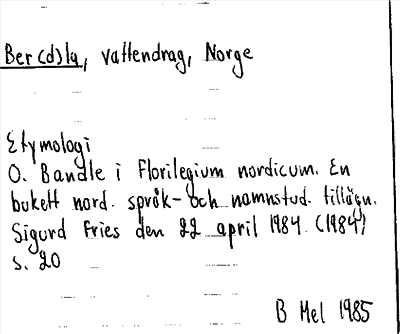 Ber(d)la, vattendrag, Norge
Etymologi
O. Bandle i Florilegium nordicum. En
bukett nord. språk- och namnstud. tillägn.
Sigurd Fries den 22 april 1984. (1984)
s. 20
B Mel 1985